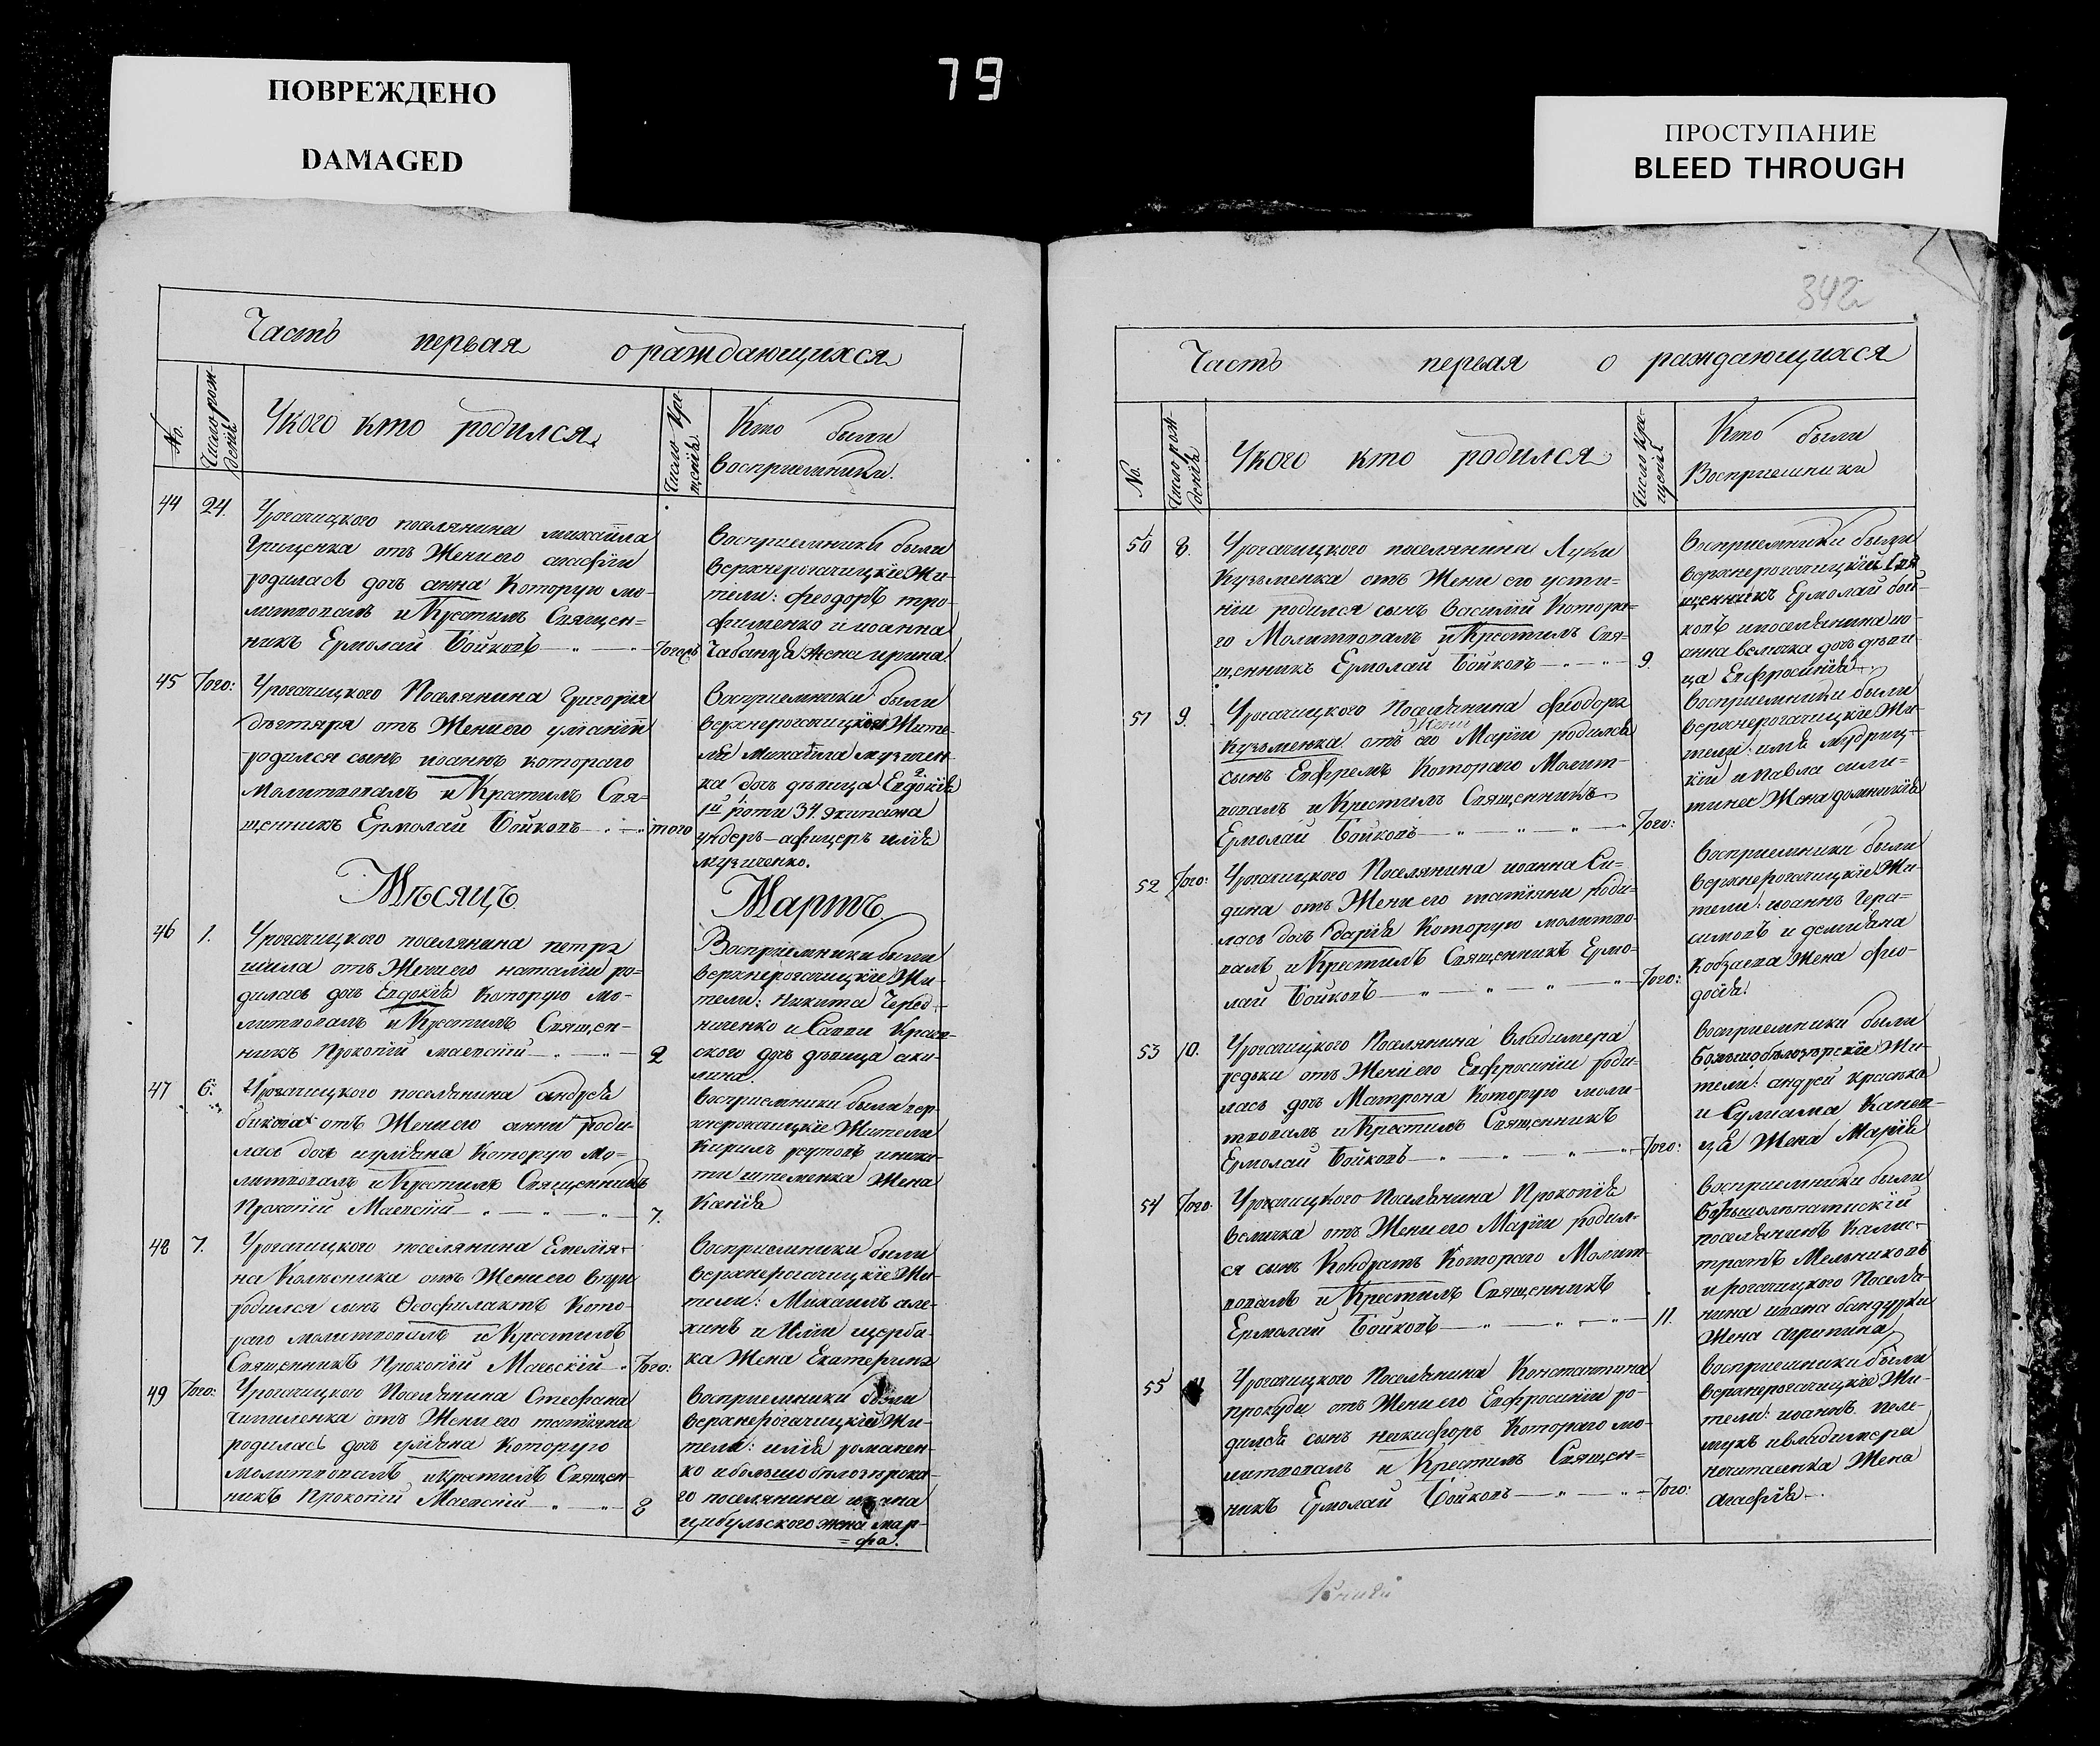 ПОВРЕЖДЕНО
DAMAGED
79
ПРОСТУПАНИЕ
BLEED THROUGH
342
Часть первая о раждающихся
№.
Число рож-
денія
Укого кто родился
Число Кре-
щенія
Кто были
воспріемники.
44 24.
Урогачицкого поселянина михаиıла
Грищенка отъ Жениего агафіи
родиласъ дочъ анна Которую мо-
литвовалъ и Крестилъ Священ=
никъ Ермолай Бойковъ
Воспріемники были
верхнерогачицкіе Жи-
тели: феодоръ тро-
фименко и иоанна
Чабанца жена ирина.
45 Того:
Урогачицкого Поселянина Григорія
дѣгтяра отъ Жениего уліаніи
родился сынъ иоаннъ котораго
молитвовалъ и Крестилъ Свя=
щенникъ Ермолай Бойковъ того
Воспріемники были
верхнерогачицкія Жите-
ля михаила музичен-
ка дочъ дѣвица Евдокія
ıй роти 34. экипажа
ундеръ-афицеръ илія
музиченко.
Мѣсяцъ Мартъ
46 1.
Урогачицкого поселянина петра
шила отъ Жениего наталіи ро=
диласъ дочъ Евдокія Которую мо-
литвовалъ и Крестилъ Священ-
никъ Прокопій маевскій 2
Воспріемники были
верхнерогачицкіе Жи-
тели: Никита Черед-
ниченко и Саввы Краси
ского дочъ дѣвица аки-
лина.
47 6.
Урогачицкого поселянина андрея
бикова отъ Жениего анни роди-
ласъ дочъ иуліана Которую мо=
литвовалъ и Крестилъ Священникъ
Прокопій Маевскій 7.
Воспріемники были вер-
хнерогачицкіе Жители
Кирилъ реутовъ и ники-
ти штеменка Жена
Ксенія
48 7.
Урогачицкого поселянина Емелія-
на Колѣсника отъ Жениего вѣри
родился сынъ Ѳеофилактъ Кото-
раго молитвовалъ и Крестилъ
Священникъ Прокопій Маевскій Того:
Воспріемники были
верхнерогачицкіе Жи-
тели: Михаилъ але-
хинъ и Иліи щерба-
ка Жена Екатерина
49 Того:
Урогачицкого Поселянина Стефана
Чипиленка отъ Жени его татіяни
родиласъ дочъ уліяна Которую
молитвовалъ и крестилъ Священ-
никъ Прокопій Маевскій 8
Воспріемники были
верхнерогачицкій Жи-
тель: илія романен-
ко и большобѣлозѣрска-
го поселянина ивана
цибульского жена мар-
=фа.
Часть первая о раждающихся
№.
Число рож-
денія
Укого кто родился
Число кре-
щенія
Кто были
Воспріемники
50 8.
Урогачицкого поселянина Луки
Кузьменка отъ Жени его усти=
ніи родился сынъ василій Котора=
го Молитвовалъ и Крестилъ Свя=
щенникъ Ермолай Бойковъ 9.
Воспріемники были
верхнерогачицкій Свя
щенникъ Ермолай бой-
ковъ и поселянина ио-
анна велычка дочъ дѣви-
ца Евфросинія
51 9.
Урогачицкого Поселянина феодора
Жени
Кузьменка отъ его Маріи родился
сынъ Евфремъ Котораго Молит-
вовалъ и Крестилъ Священникъ
Ермолай Бойковъ Того:
Воспріемники были
верхнерогачицкіе Жи-
тели: илія мудриц-
кій и павла сили-
Жена домникія
52 Того:
Урогачицкого Поселянина иоанна Си=
дина отъ Жени его татіяни роди-
ласъ дочъ дарія Которую молитво-
валъ и Крестилъ Священникъ Ермо-
лай Бойковъ Того:
Воспріемники были
верхнерогачицкіе Жи-
тели: иоаннъ Гера-
симовъ и деміяна
Кобзаева Жена фео-
досія.
53 10.
Урогачицкого Поселянина владимера
редьки отъ Жени его Евфросиніи роди-
ласъ дочъ Матрона Которую моли-
твовалъ и Крестилъ Священникъ
Ермолай Бойковъ Того:
Воспріемники были
большобѣлозѣрскіе Жи-
тели: андрей красъка
и Сулиама Канев-
ца Жена Марія
54 Того.
Урогачицкого Поселянина Прокопія
величка отъ Жени его Маріи родил-
ся сынъ Кондратъ Котораго Молит-
вовалъ и Крестилъ Священникъ
Ермолай Бойковъ 11.
Воспріемники были
большолѣпатискій
поселянинъ Калис-
тратъ Мельниковъ
и рогачицкого Поселя-
нина ивана бандурки
Жена агрипина
55 11
Урогачицкого Поселянина Константина
прокуди отъ Жени его Евфросиніи ро-
дился сынъ никифоръ Котораго мо-
литвовалъ и Крестилъ Священ=
никъ Ермолай Бойковъ Того:
Воспріемники были
верхнерогачицкіе Жи-
тели: иоаннъ пеле-
щукъ и владимера
ничипаенка Жена
агафія